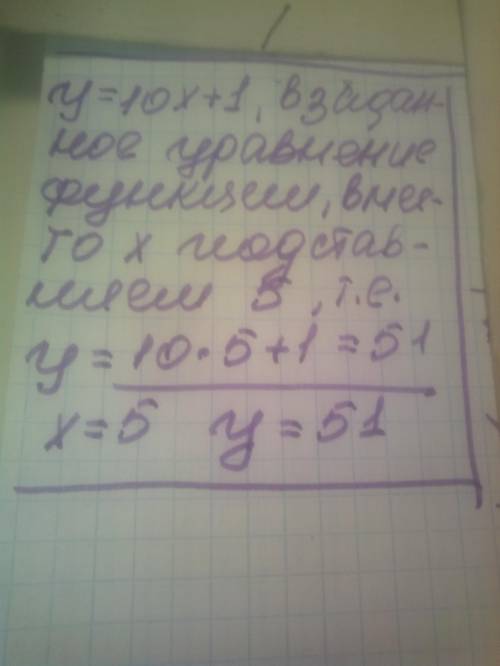 y=10x+1, в задан-
ное уравнение
функции, вмес-
то x подстав-
ляем 5, т.е.
y=10·5+1=51
x=5 y=51